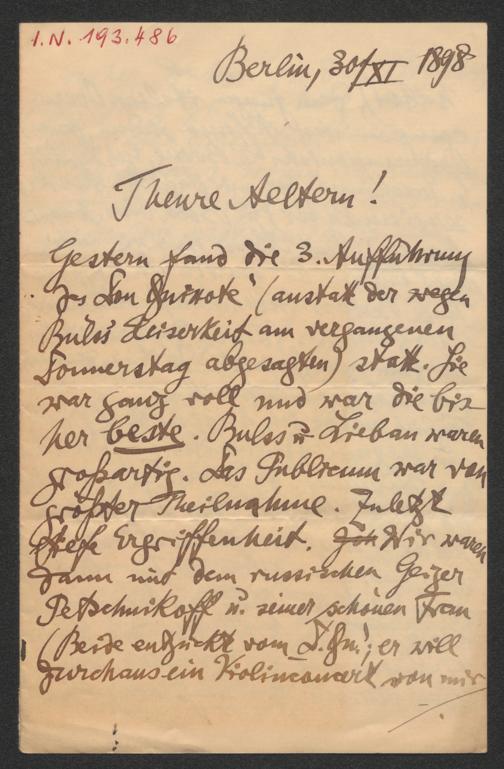 I.N. 193.486
Berlin, 30/XI 1898
Theure Aeltern!
Gestern fand die 3. Aufführung
des Don Quixote' (anstatt der wegen
Bulss' Heiserkeit am vergangenen
Donnerstag abgesagten) statt. Sie
war ganz voll und war die bis-
her beste. Bulss u. Lieban waren
großartig. Das Publicum war von
größter Theilnahme. Zuletzt
tiefe Ergriffenheit. Wir waren
dann mit dem russischen Geiger
Petschnikoff u. seiner schönen Frau
(Beide entzückt vom D. Qu.', er will
durchaus ein Violinconcert von mir